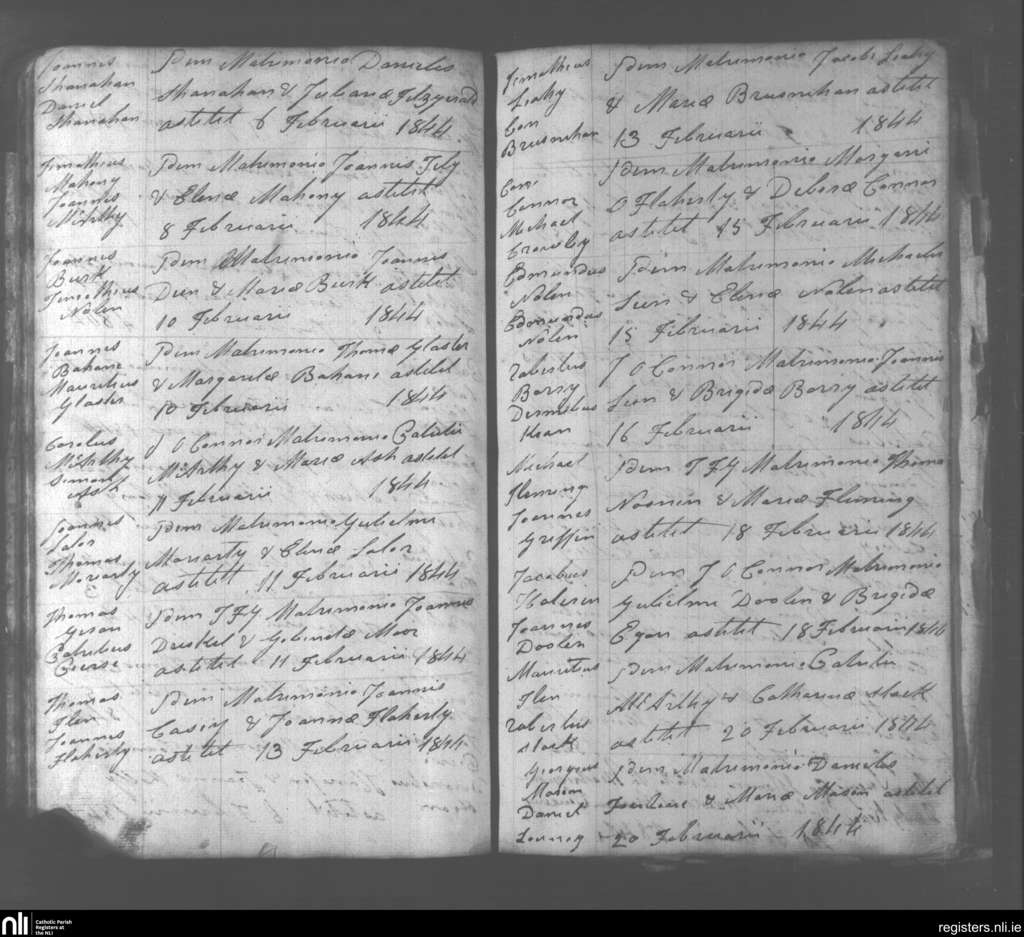 Joannes
Shanahan
Daniel
Shanahan
Idem Matrimonio Danielis
Shanahan & Julianæ Fitzgerald
astitit 6 Februarii 1844
Timotheus
Mahony
Joannes
McArthy
Idem Matrimonio Joannis
& Elenæ Mahony astitit
8 Februarii 1844
Joannes
Burk
Timotheus
Nolen
Idem Matrimonio Joannis
& Mariæ Burk astitit
10 Februarii 1844
Joannes
Bahane
Mauritius
Glaster
Idem Matrimonio Thomæ Glaster
& Margaretæ Bahane astitit
10 Februarii 1844
Carolus
McArthy
Simon
Ash
J O Connor Matrimonio Patritii
McArthy & Mariæ Ash astitit
11 Februarii 1844
Joannes
Lalor
Thomas
Moriarty
Idem Matrimonio Gulielmi
Moriarty & Elenæ Lalor
astitit 11 Februarii 1844
Thomas
Patritius
Pierse
Idem Matrimonio Joannis
Driskel & Gobinetæ Moor
astitit 11 Februarii 1844
Thomas
Flen
Joannes
Flaherty
Idem Matrimonio Joannis
Casey & Joannæ Flaherty
astitit 13 Februarii 1844
Timotheus
Leahy
Con
Brusnihan
Idem Matrimonio Jacobi Leahy
& Mariæ Brusnihan astitit
13 Februarii 1844
Con
Connor
Michael
Crowley
Idem Matrimonio
O Flaherty & Deboræ Connor
astitit 15 Februarii 1844
Edmundus
Nolen
Edmundus
Nolen
Idem Matrimonio Michaelis
& Elenæ Nolen astitit
15 Februarii 1844
Robertus
Barry
Kean
J O Connor Matrimonio Joannis
& Brigidæ Barry astitit
16 Februarii 1844
Michael
Fleming
Joannes
Griffin
Idem Matrimonio Thomæ
Noonin & Mariæ Fleming
astitit 18 Februarii 1844
Jacobus
Joannes
Doolen
Idem J O Connor Matrimonio
Gulielmi Doolen & Brigidæ
Egan astitit 18 Februarii 1844
Mauritius
Flen
Robertus
Stack
Idem Matrimonio Patritii
McArthy & Catharinæ Stack
astitit 20 Februarii 1844
Georgius
Mason
Daniel
Looney
Idem Matrimonio Danielis
& Mariæ Mason astitit
20 Februarii 1844
nli
Catholic Parish
Registers at
the NLI
registers.nli.ie